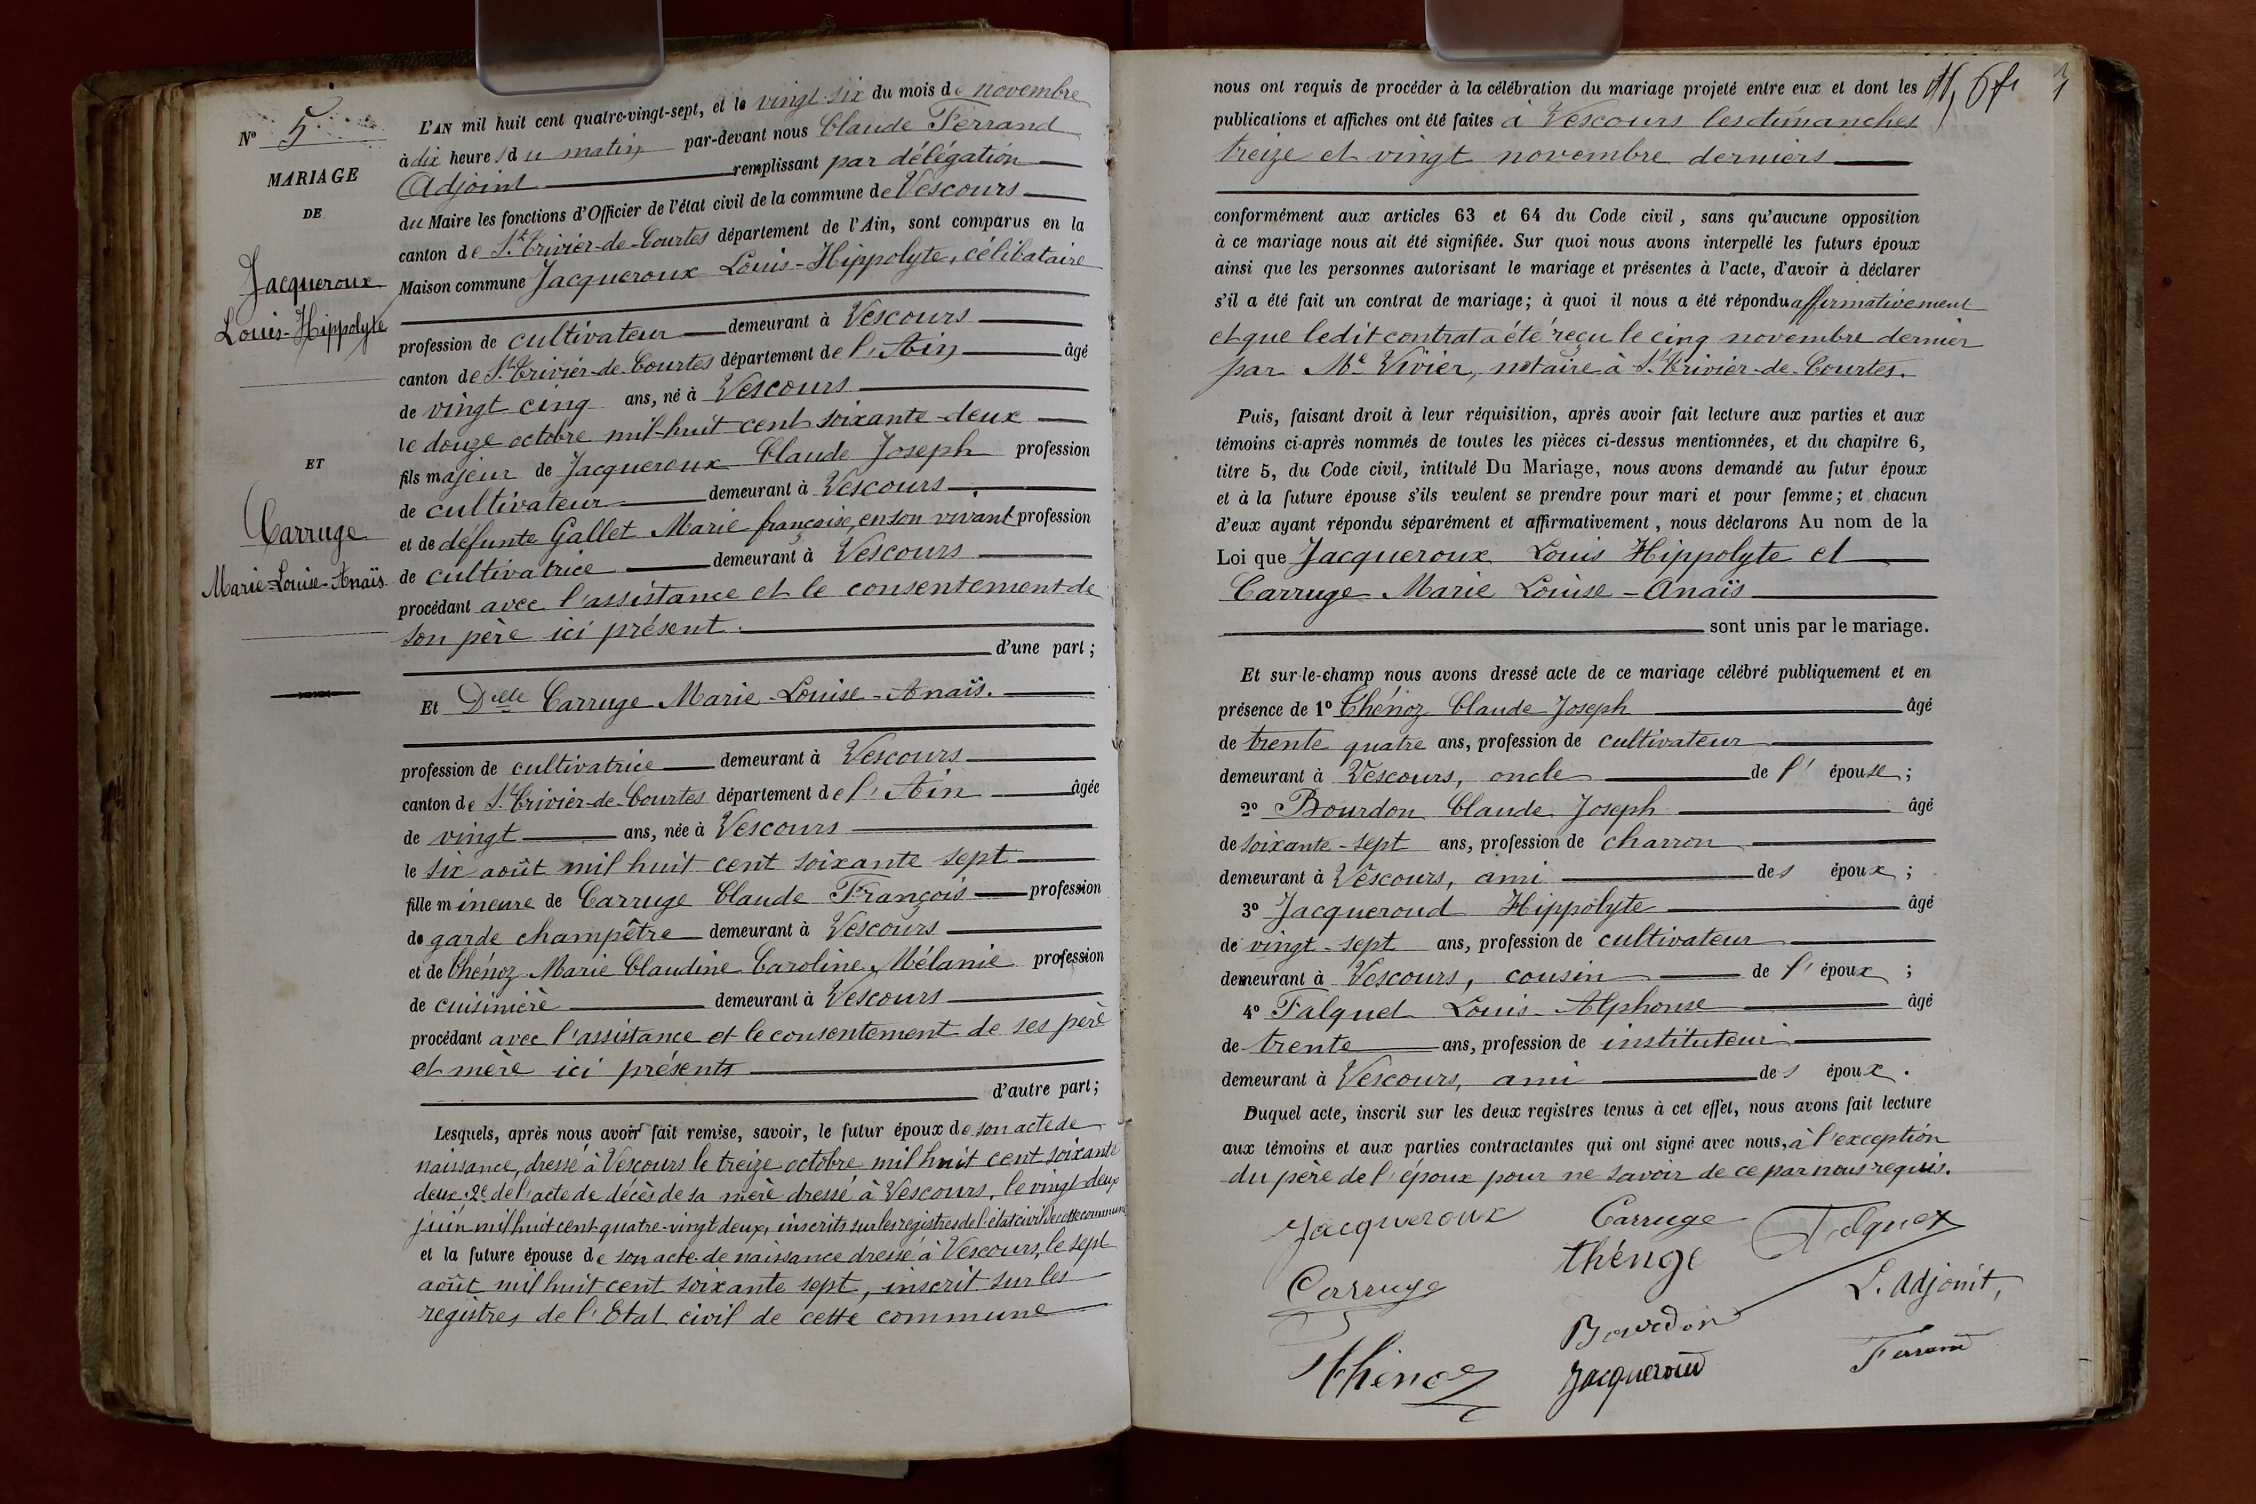 N° 5
MARIAGE
DE
Jacqueroux
Louis-Hippolyte
ET
Carruge
Marie-Louise-Anaïs
L'AN mil huit cent quatre-vingt-sept, et le vingt six du mois de novembre
à dix heures du matin par-devant nous Claude Ferrand
Adjoint remplissant par délégation
du Maire les fonctions d'Officier de l'état civil de la commune de Vescours
canton de St. Trivier-de-Courtes département de l'Ain, sont comparus en la
Maison commune Jacqueroux Louis-Hippolyte, célibataire
profession de cultivateur demeurant à Vescours
canton de St. Trivier-de-Courtes département de l'Ain âgé
de vingt cinq ans, né à Vescours
le douze octobre mil huit cent soixante-deux
fils majeur de Jacqueroux Claude Joseph profession
de cultivateur demeurant à Vescours
et de défunte Gallet Marie françoise, en son vivant profession
de cultivatrice demeurant à Vescours
procédant avec l'assistance et le consentement de
son père ici présent.
d'une part;
Et Delle Carruge Marie-Louise-Anaïs.
profession de cultivatrice demeurant à Vescours
canton de St. Trivier-de-Courtes département de l'Ain âgée
de vingt ans, née à Vescours
le six août mil huit cent soixante sept
fille mineure de Carruge Claude François profession
de garde champêtre demeurant à Vescours
et de Thénoz Marie Claudine Caroline Mélanie profession
de cuisinière demeurant à Vescours
procédant avec l'assistance et le consentement de ses père
et mère ici présents
d'autre part;
Lesquels, après nous avoir fait remise, savoir, le futur époux de son acte de
naissance, dressé à Vescours le treize octobre mil huit cent soixante
deux; 2e de l'acte de décès de sa mère dressé à Vescours, le vingt-deux
juin mil huit cent quatre-vingt deux, inscrits sur les registres de l'état civil de cette commune
et la future épouse de son acte de naissance dressé à Vescours, le sept
août mil huit cent soixante sept, inscrit sur les
registres de l'Etat civil de cette commune
nous ont requis de procéder à la célébration du mariage projeté entre eux et dont les
publications et affiches ont été faites à Vescours les dimanches
treize et vingt novembre derniers
conformément aux articles 63 et 64 du Code civil, sans qu'aucune opposition
à ce mariage nous ait été signifiée. Sur quoi nous avons interpellé les futurs époux
ainsi que les personnes autorisant le mariage et présentes à l'acte, d'avoir à déclarer
s'il a été fait un contrat de mariage; à quoi il nous a été répondu affirmativement
et que ledit contrat a été reçu le cinq novembre dernier
par Me Vivier, notaire à St. Trivier-de-Courtes.
Puis, faisant droit à leur réquisition, après avoir fait lecture aux parties et aux
témoins ci-après nommés de toutes les pièces ci-dessus mentionnées, et du chapitre 6,
titre 5, du Code civil, intitulé Du Mariage, nous avons demandé au futur époux
et à la future épouse s'ils veulent se prendre pour mari et pour femme; et chacun
d'eux ayant répondu séparément et affirmativement, nous déclarons Au nom de la
Loi que Jacqueroux Louis Hippolyte et
Carruge Marie Louise-Anaïs
sont unis par le mariage.
Et sur-le-champ nous avons dressé acte de ce mariage célébré publiquement et en
présence de 1° Thénoz Claude Joseph âgé
de trente quatre ans, profession de cultivateur
demeurant à Vescours, oncle de l'épouse;
2° Bourdon Claude Joseph âgé
de soixante-sept ans, profession de charron
demeurant à Vescours, ami des époux;
3° Jacqueroud Hippolyte âgé
de vingt-sept ans, profession de cultivateur
demeurant à Vescours, cousin de l'époux;
4° Falquet Louis-Alphonse âgé
de trente ans, profession de instituteur
demeurant à Vescours, ami des époux.
Duquel acte, inscrit sur les deux registres tenus à cet effet, nous avons fait lecture
aux témoins et aux parties contractantes qui ont signé avec nous, à l'exception
du père de l'époux pour ne savoir de ce par nous requis.
Jacqueroux Carruge Falquet
thénoz
Carruge L. Adjoint,
Bourdon
Thénoz Jacqueroud Ferrand